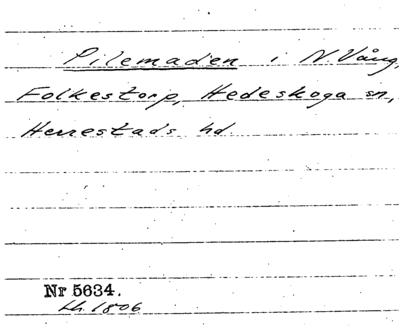 Pilemaden i N. Vång,
Folkestorp, Hedeskoga sn,
Herrestads hd
Nr 5634.
Lh. 1806